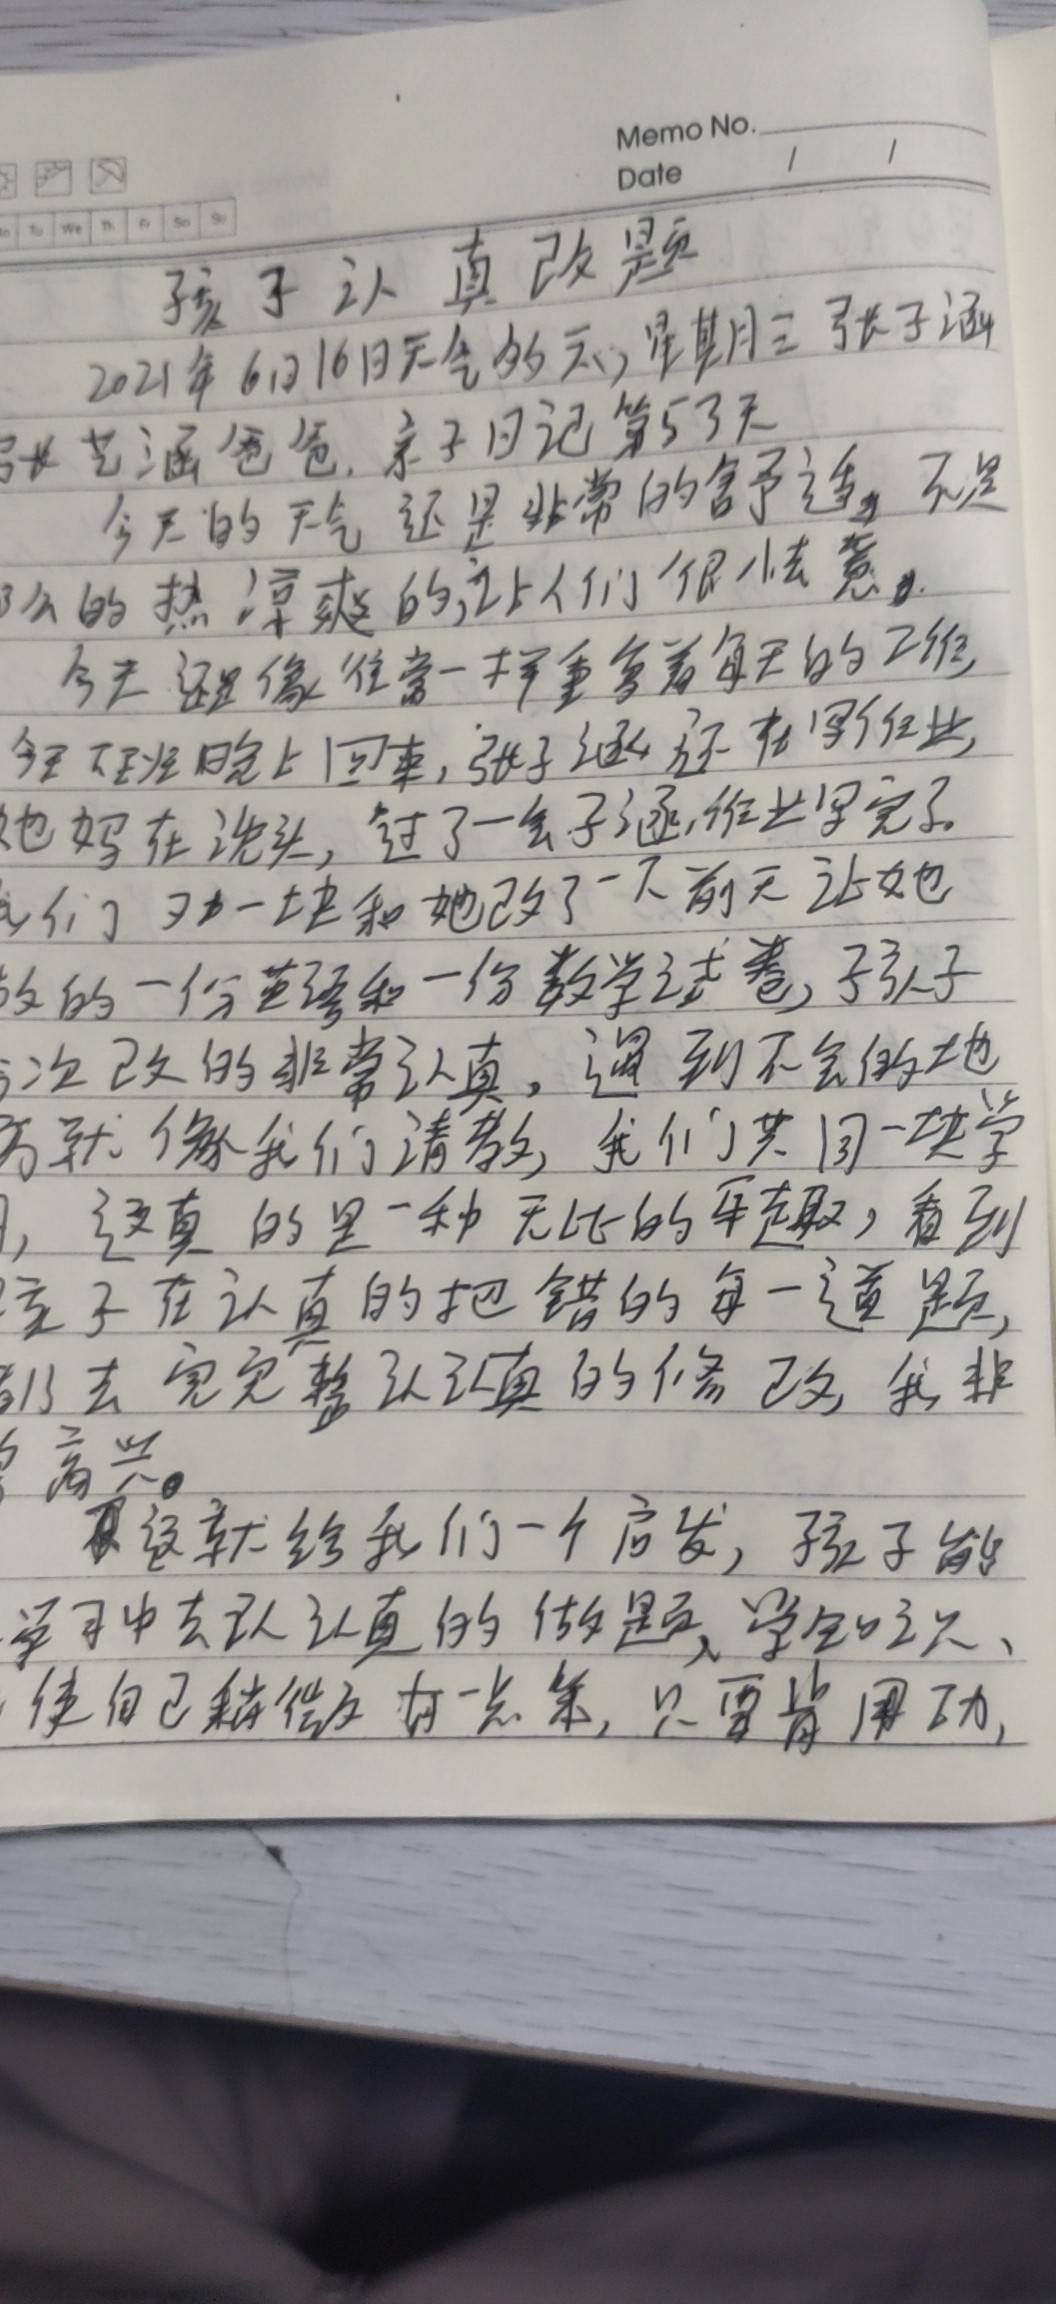 Memo No.
Date / /
Tu We Th Fr Sa Su
孩子认真改题
2021年6月16日天气的天,星期三 张子涵
张艺涵爸爸.亲子日记第53天
今天的天气还是非常的舒适。不是
那么的热凉爽的,让人们很惬意。
今天还是像往常一样重复着每天的工作,
今天下班晚上回来,张子涵还在写作业,
她妈在洗头,过了一会子涵作业写完了。
我们又一块和她改了一下前天让她
做的一份英语和一份数学试卷,孩子
今次改的非常认真。遇到不会的地
方就像我们请教,我们共同一块学
习,这真的是一种无比的乐趣,看到
孩子在认真的把错的每一道题,
都去完完整认认真的修改,我非
常高兴。
这就给我们一个启发,孩子能
学习中去认认真的做题、学知识、
使自己稍微有一点笨,只要肯用功,